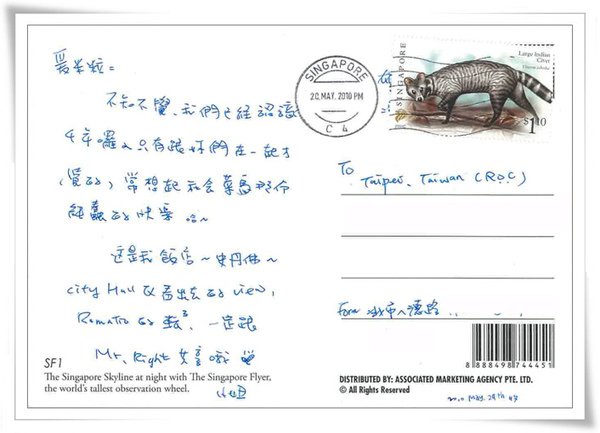 愛米粒=
不知不覺、我們已經認識
4年囉~只有跟妳們在一起才
常想起社會菜鳥那份
蠢的快樂 哈~
這是我飯店~史丹佛~
city Hall 看出去的 view,
Romatic的 一定跟
Mr. Right 喔
SF1
The Singapore Skyline at night with The Singapore Flyer,
the world's tallest observation wheel.
SINGAPORE
20. MAY. 2010 PM
C 4
Large Indian
Civet
Viverra zibetha
SINGAPORE
$1.10
To
Taipei, Taiwan (R.O.C)
From
8 888498 744451
DISTRIBUTED BY: ASSOCIATED MARKETING AGENCY PTE. LTD.
© All Rights Reserved
2010 May.